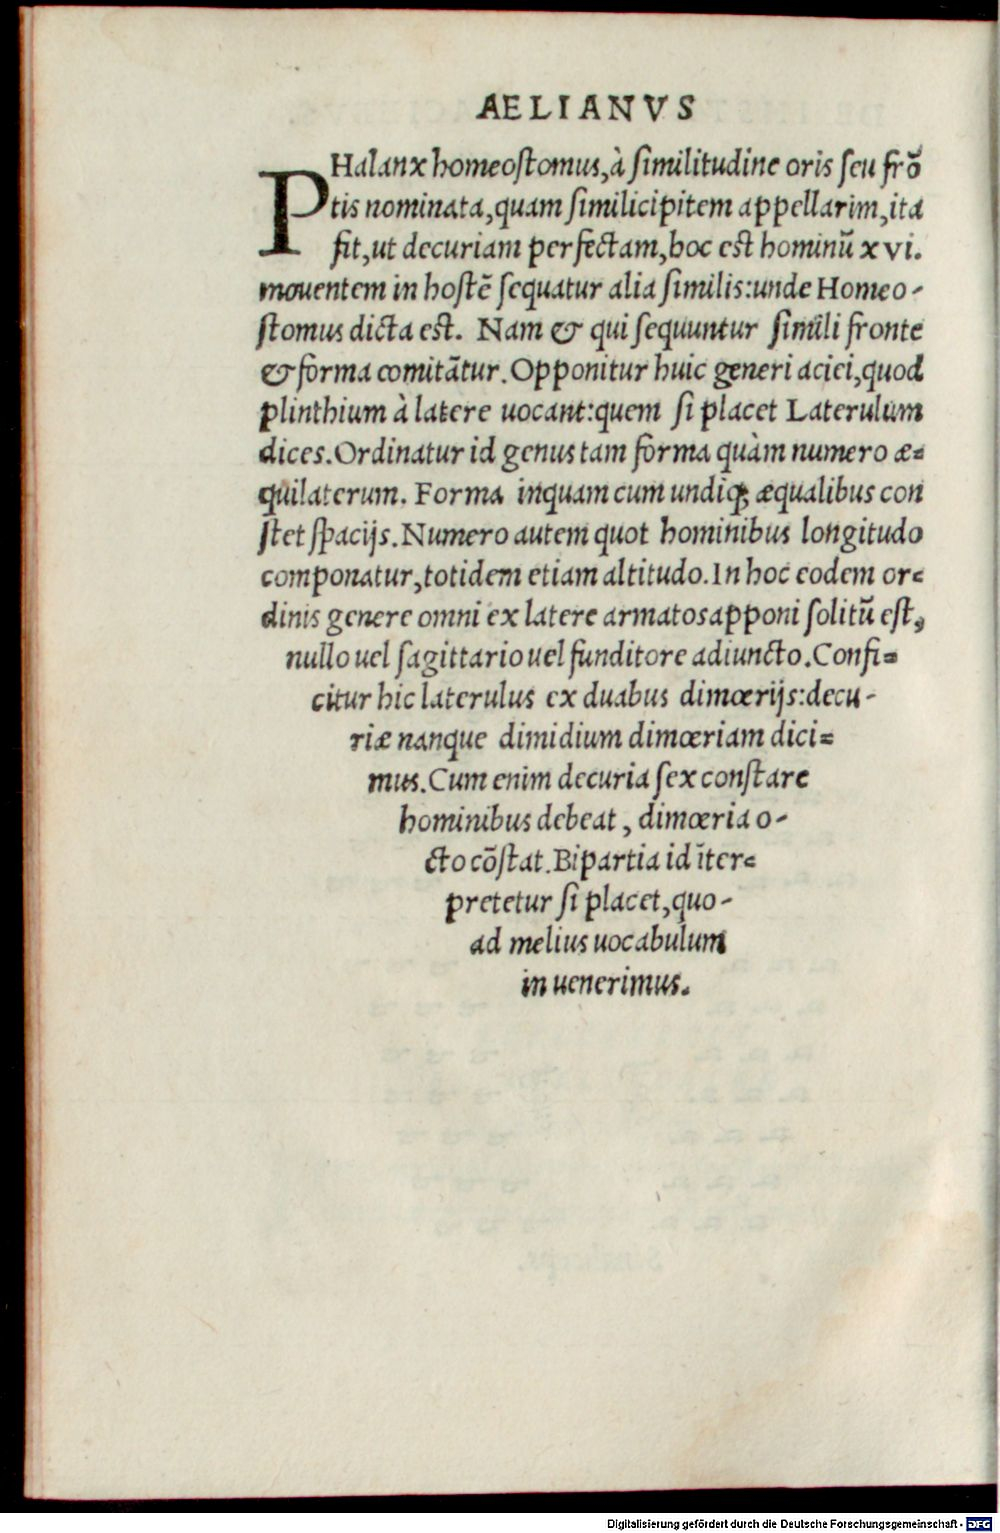 AELIANVS
PHalanx homeostomus,à similitudine oris seu frõ
tis nominata,quam similicipitem appellarim,ita
fit,ut decuriam perfectam,hoc est hominũ xvi.
mouentem in hostẽ sequatur alia similis:unde Homeo-
stomus dicta est. Nam & qui sequuntur simili fronte
& forma comitãtur.Opponitur huic generi aciei,quod
plinthium à latere uocant:quem si placet Laterulum
dices.Ordinatur id genus tam forma quàm numero æ-
quilaterum. Forma inquam cum undiq; æqualibus con
stet spacijs.Numero autem quot hominibus longitudo
componatur,totidem etiam altitudo.In hoc eodem or-
dinis genere omni ex latere armatos apponi solitũ est,
nullo uel sagittario uel funditore adiuncto.Confi-
citur hic laterulus ex duabus dimœrijs:decu-
riæ nanque dimidium dimœriam dici-
mus.Cum enim decuria sex constare
hominibus debeat, dimœria o-
cto cõstat.Bipartia id ĩter-
pretetur si placet,quo-
ad melius uocabulum
in uenerimus.
Digitalisierung gefördert durch die Deutsche Forschungsgemeinschaft - DFG